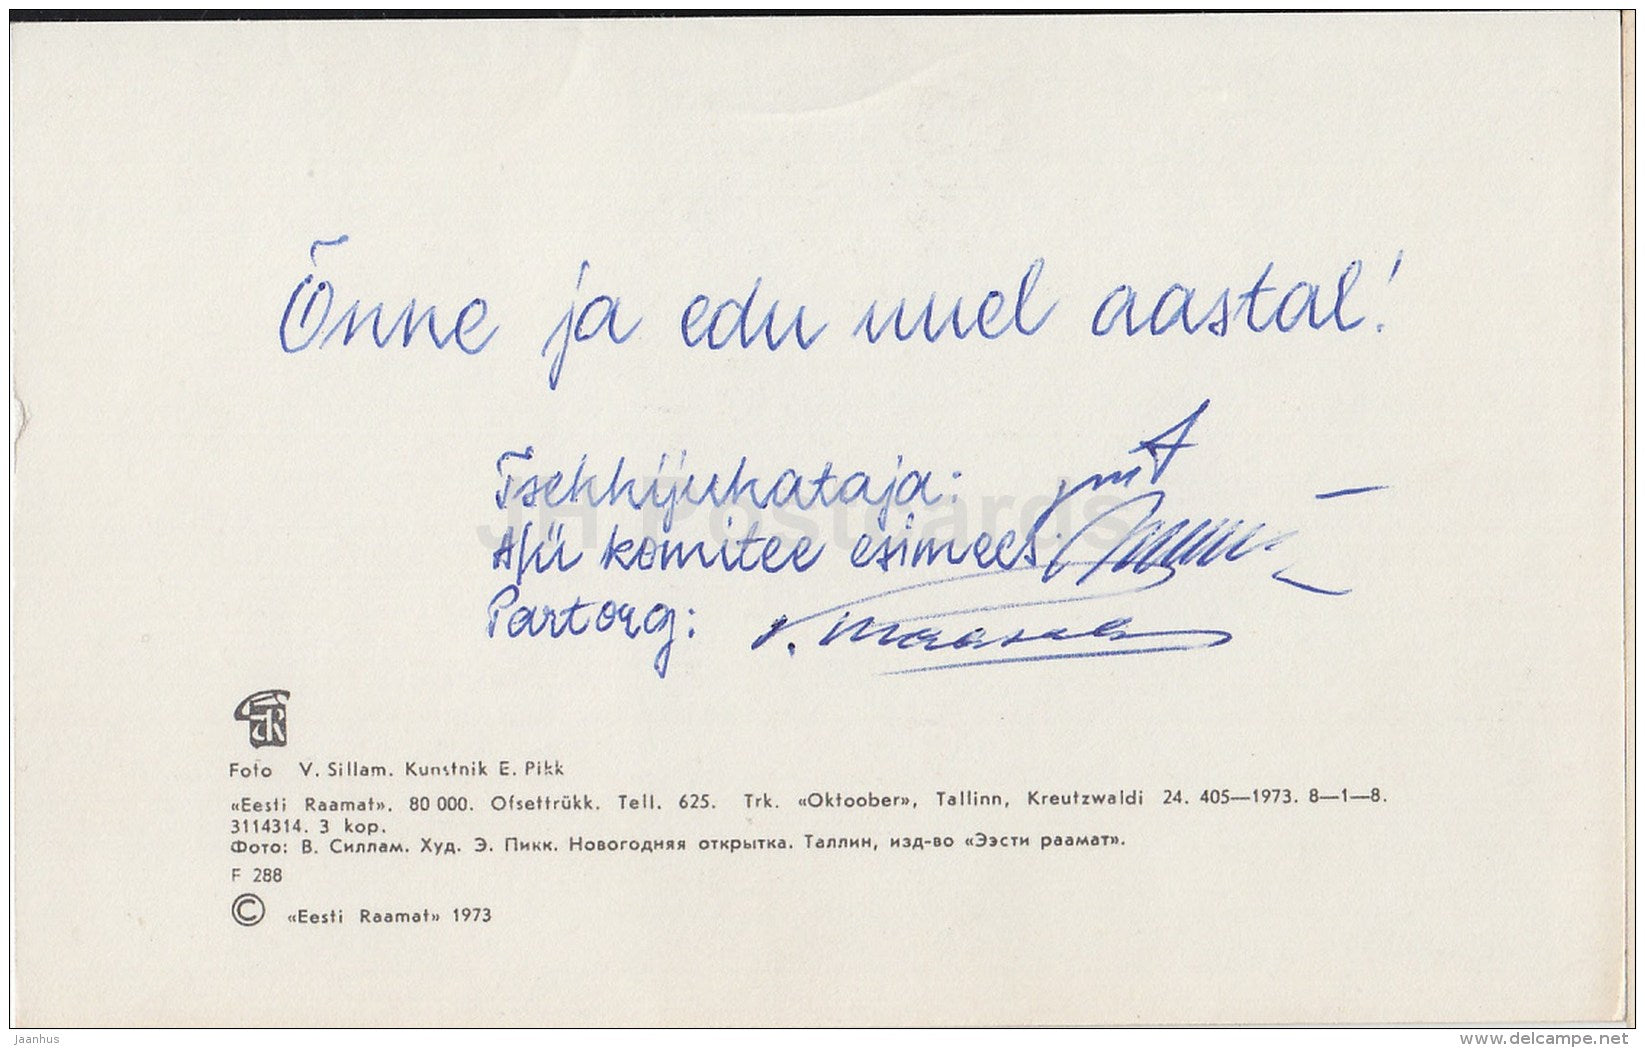 Õnne ja edu uuel aastal!
Tsehhijuhataja:
A/ü komitee esimees:
Partorg:
JH Postcards
Foto V. Sillam. Kunstnik E. Pikk
«Eesti Raamat». 80 000. Ofsettrükk. Tell. 625. Trk. «Oktoober», Tallinn, Kreutzwaldi 24. 405—1973. 8—1—8.
3114314. 3 kop.
Фото: В. Силлам. Худ. Э. Пикк. Новогодняя открытка. Таллин, изд-во «Ээсти раамат».
F 288
© «Eesti Raamat» 1973
jaanhus
delcampe.net